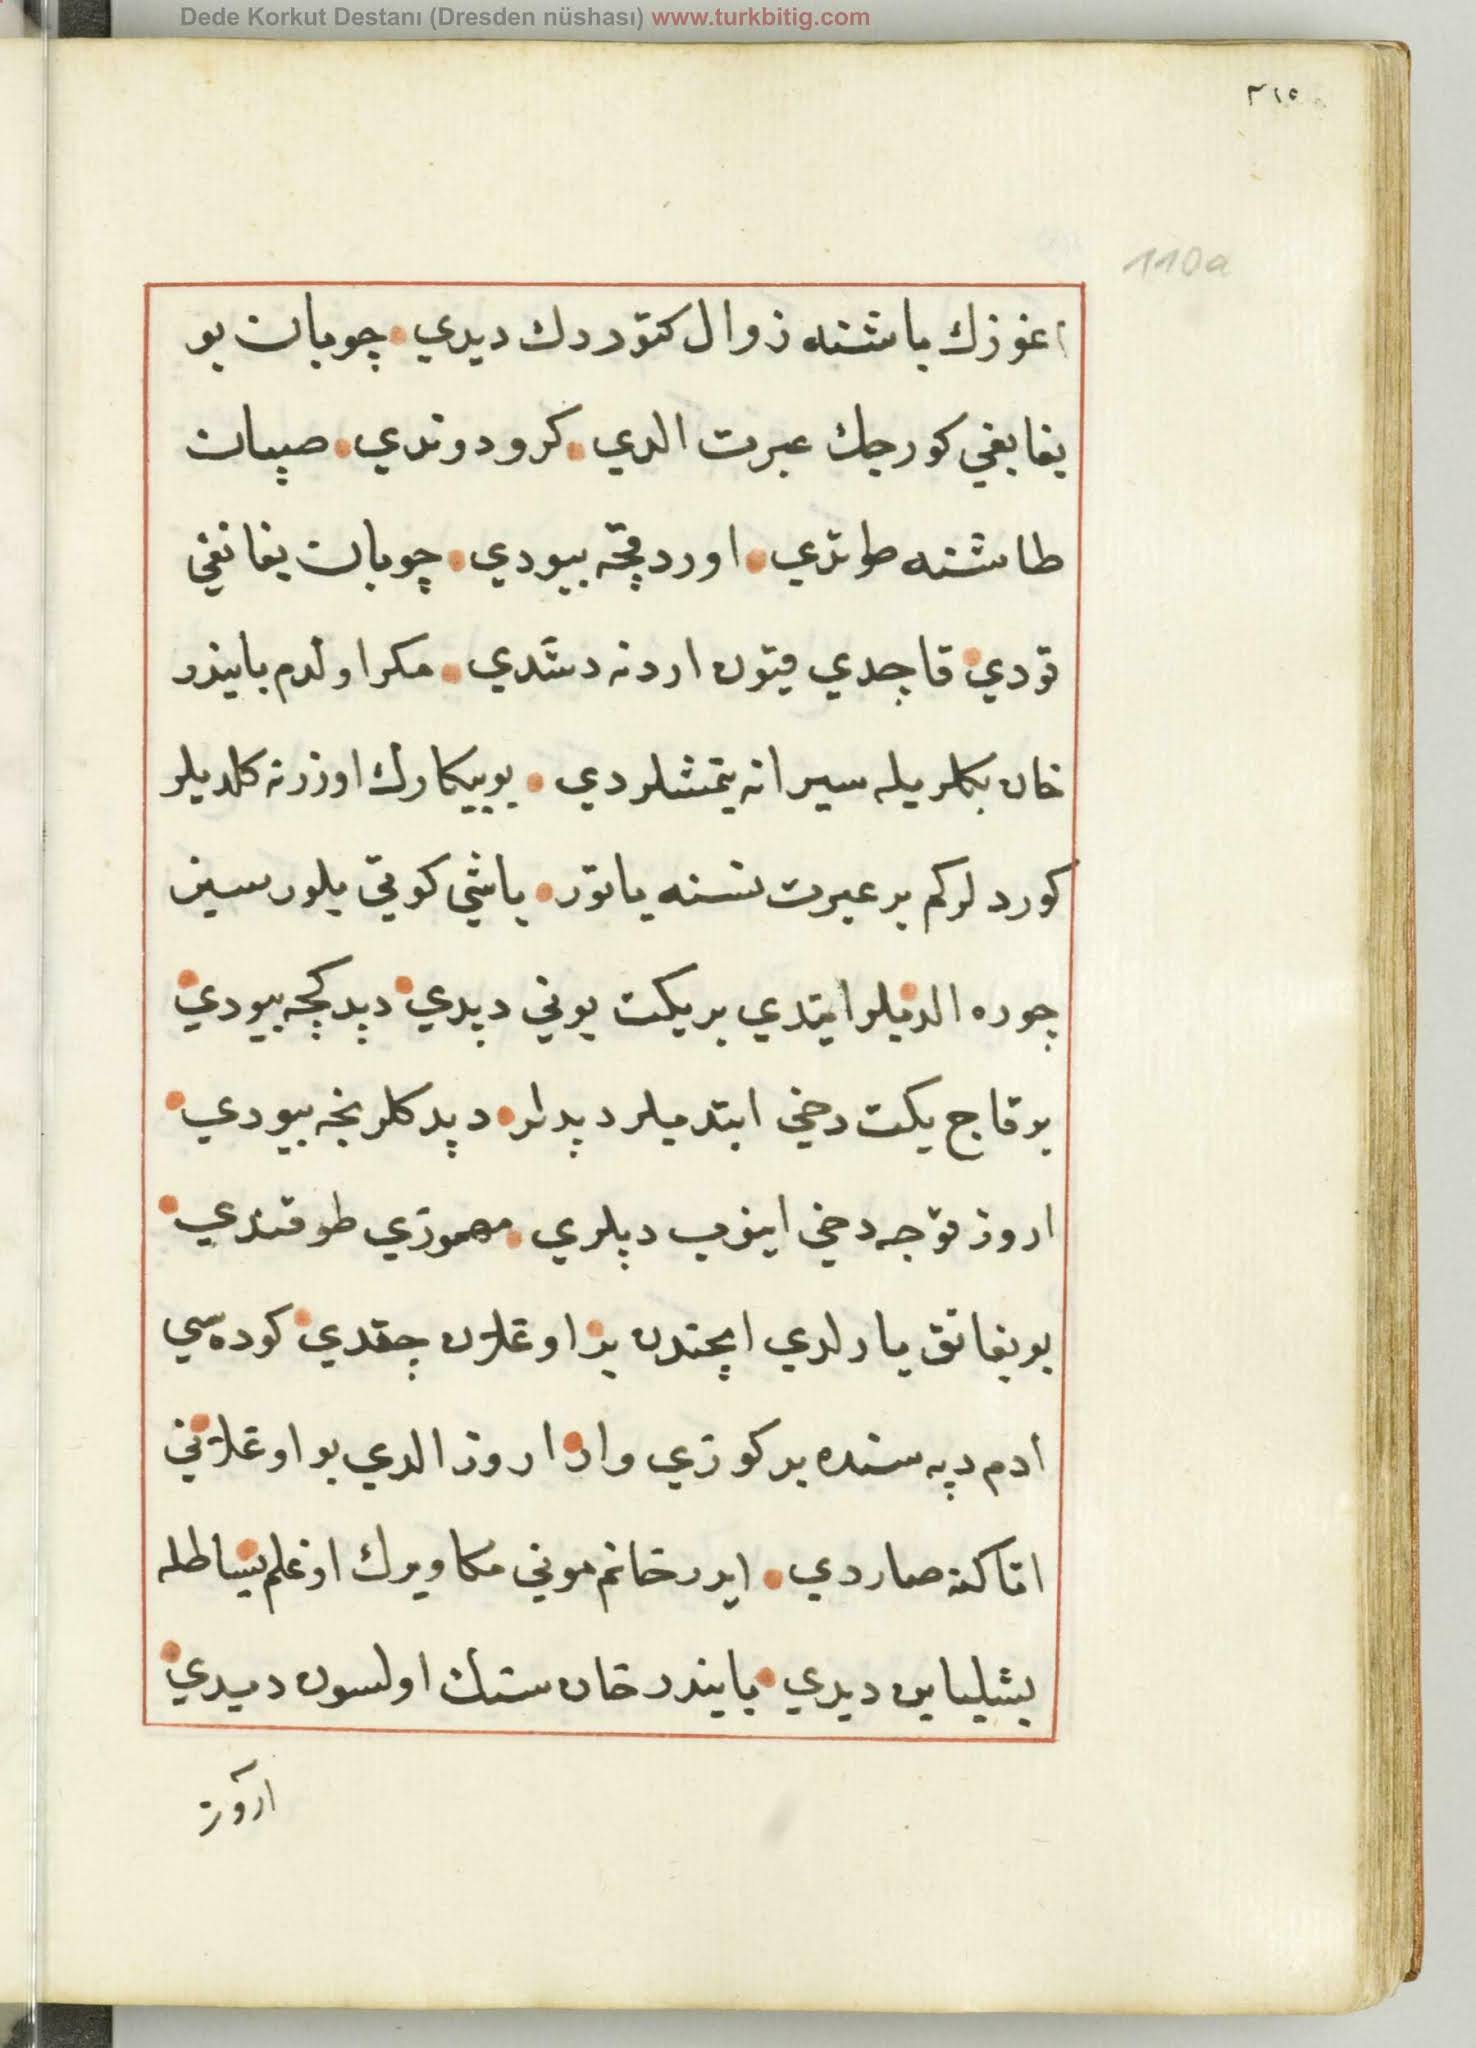 Dede Korkut Destanı (Dresden nüshası) www.turkbitig.com
٢١٥
110a
اغوزك باشنه زوال كتوردك ديدي چوبان بو
يغانغي كورجك عبرت الدي كرو دوندي صپان
طاشنه طوتدي اوردقچه بيودي چوبان يغانغي
قودي قاچدي قيون اردنه دشدي مكر اولدم بايندر
خان بكلريله سيرانه يتمشلردي بو بيكارك اوزرنه كلديلر
كوردلركم بر عبرت نسنه ياتور باشي كوتي بلورسيز
چوره الدىلر ايتدي بر يكت بوني دپدي دپدكچه بيودي
بر قاچ يكت دخي ايندىلر دپدلر دپدكلرنجه بيودي
اروز قوجه دخي اينوب دپلدي مهموزي طوقندي
بو يغانق يارلدي ايچندن بر اوغلان چقدي كوده سي
ادم دپه سنده بر كوزي وار اروز الدي بو اوغلاني
اتاكنه صاردي ايدر خانم موني مكا ويرك اوغلم بساطله
بشليايں ديدي بايندر خان سنك اولسون ديدي
اروز